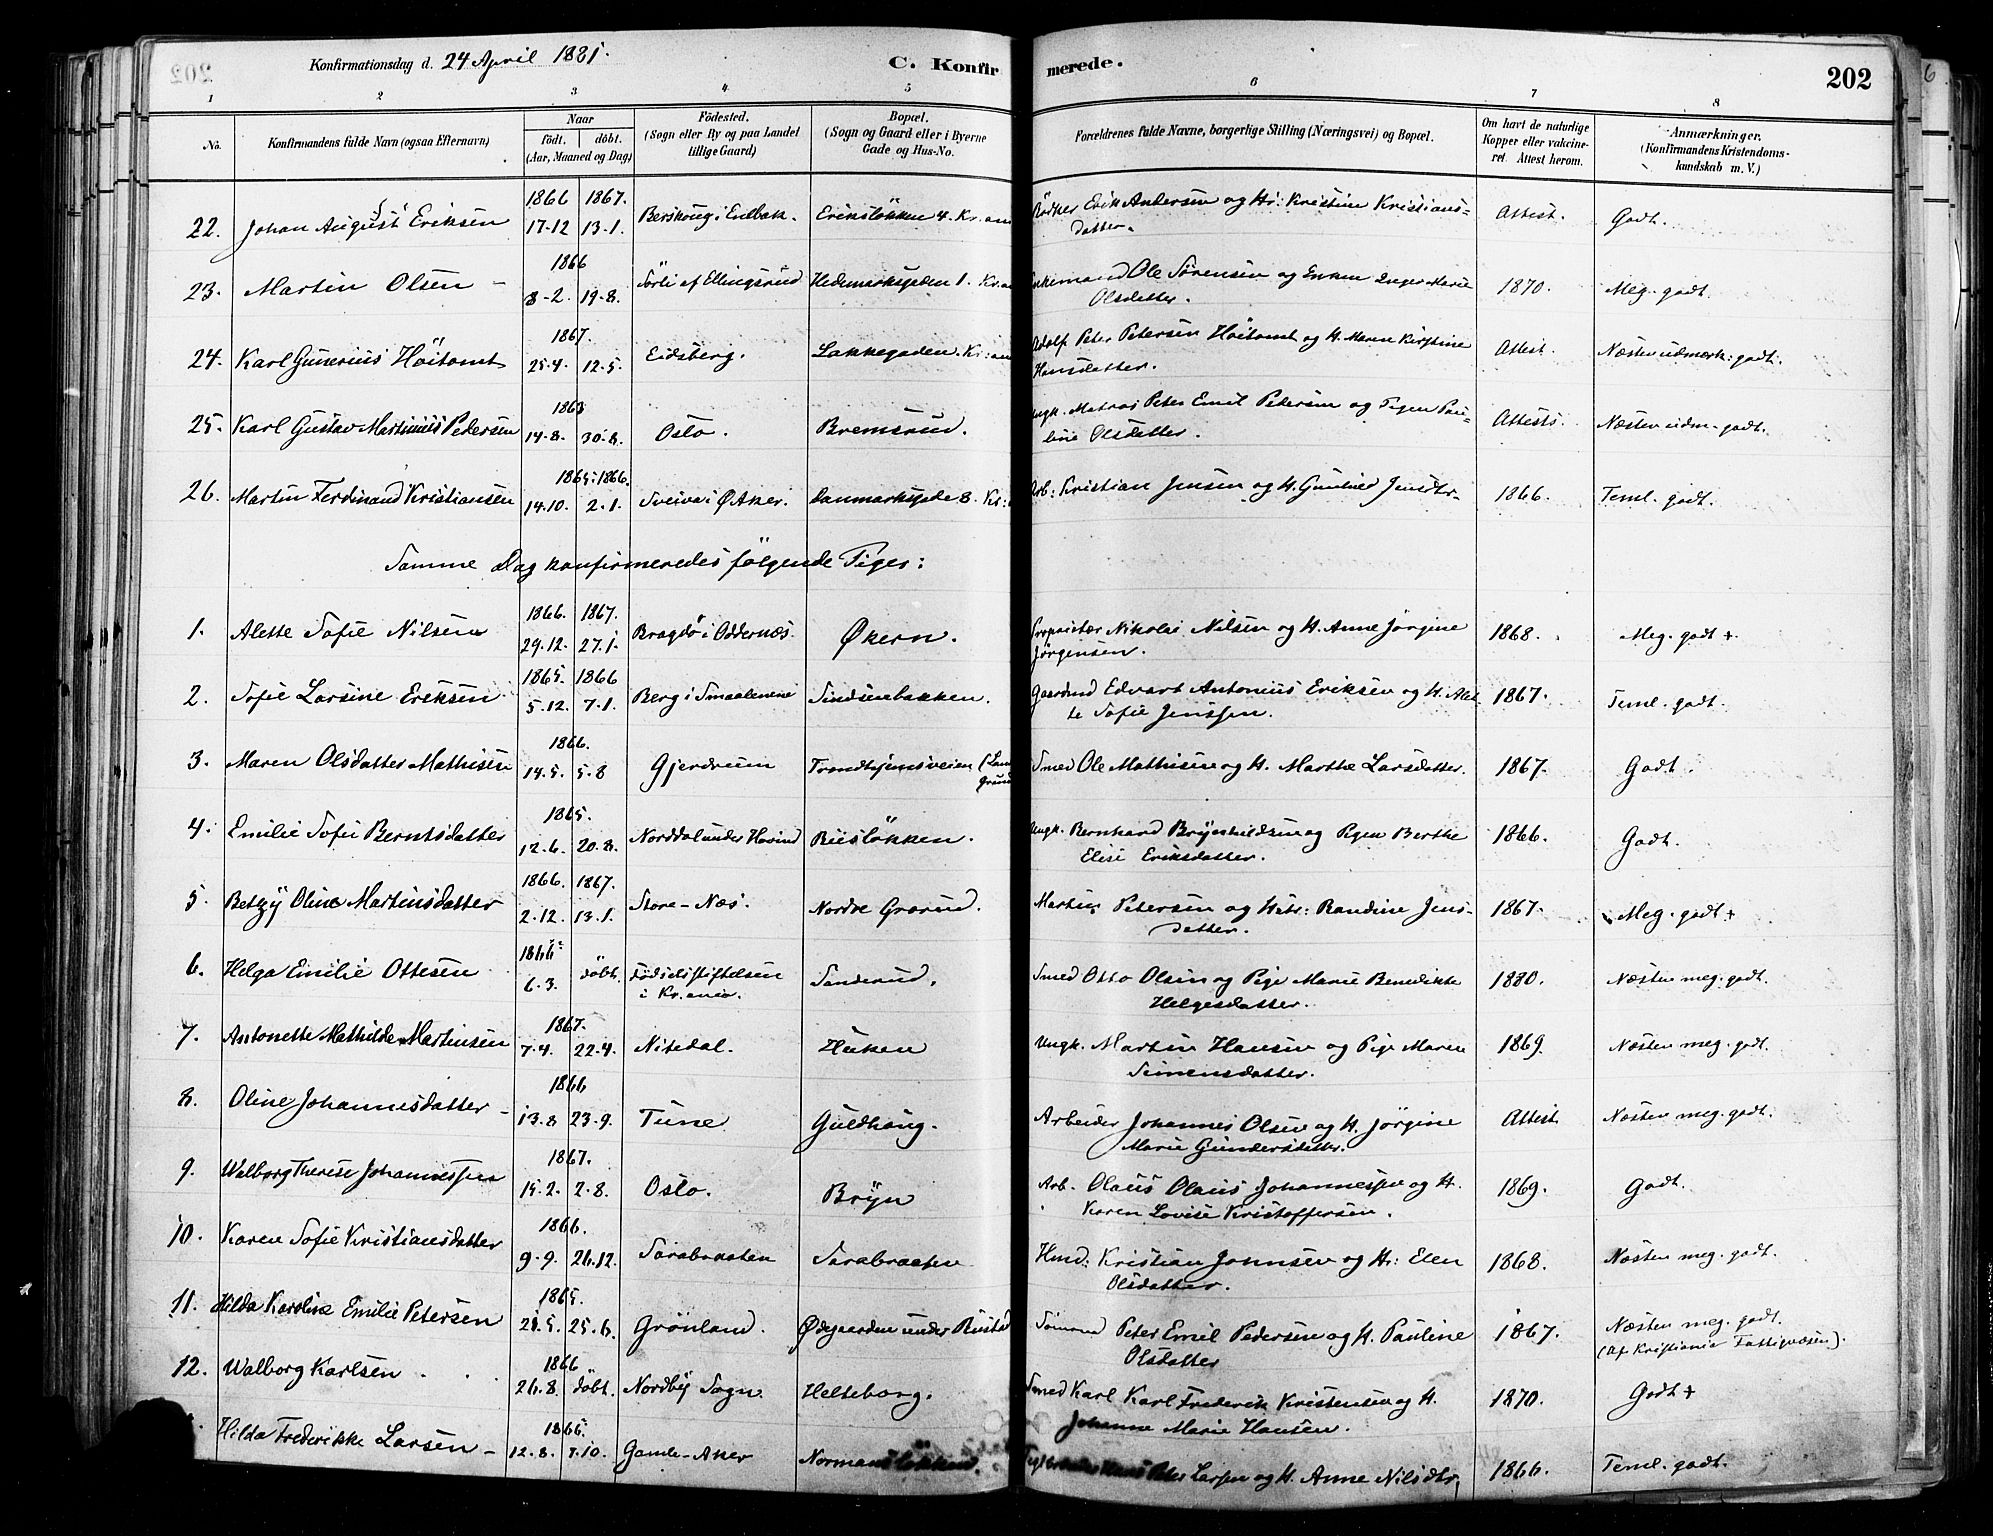 Konfirmationsdag d. 24 April 1881.
C. Konfirmerede.
202
1 2 3 4 5 6 7 8
No.
Konfirmandens fulde Navn (ogsaa Efternavn)
Naar
født. døbt.
(Aar, Maaned og Dag)
Fødested.
(Sogn eller By og paa Landet
tillige Gaard)
Bopæl.
(Sogn og Gaard eller i Byerne
Gade og Hus-No.
Forældrenes fulde Navne, borgerlige Stilling (Næringsvei) og Bopæl.
Om havt de naturlige
Kopper eller vakcine-
ret. Attest herom.
Anmærkninger.
(Konfirmandens Kristendoms-
kundskab m. V.)
1866 1867.
22. Johan August Eriksen 17-12 13-1. Berskoug i Enebak. Eriksløkken 4. Kr:ania Bødker Erik Andersen og H: Kristine Kristians-
datter. Attest. Godt.
1866
23. Martin Olsen - 8-2. 19-8. Sørli af Ellingsrud Hedemarksgaden 1. Kr.ania Enkemand Ole Sørensen og Enken Inger Marie
Olsdatter. 1870. Meg. godt.
1867.
24. Karl Gunerius Höitomt 25-4. 12-5. Eidsberg. Lakkegaden. Kr:ania Adolf Peter Petersen Höitomt og H. Maren Kirstine
Hansdatter. Attest. Næsten udmærk: godt.
25. Karl Gustav Martinius Pedersen 14-8. 30-8. Oslo. Bremsrud. Ungk. Matros Peter Emil Petersen og Pigen Pau-
line Olsdatter. Attests. Næsten udm. godt.
1865: 1866.
26. Martin Ferdinand Kristiansen 14.10. 2-1. Sveiva i Ø. Aker. Danmarksgade 8. Kr: Arb: Kristian Jensen og H. Gunhild Jensdtr. 1866. Teml. godt.
Samme Dag konfirmeredes følgende Piger:
1866. 1867.
1. Alette Sofie Nilsen 29.12. 27.1. Bragdö i Oddernæs. Økern. Proprietær Nikolai Nilsen og H. Anne Jørgine
Jørgensen. 1868. Meg. godt +
1865. 1866
2. Sofie Larsine Eriksen 5.12. 7-1. Berg i Smaalenene Sinsenbakken. Gaardmd Edvart Antonius Eriksen og H. Alet-
te Sofie Jenssen. 1867. Teml. godt.
1866.
3. Maren Olsdatter Mathisen 14.5. 5-8 Gjerdrum Trondhjemsveien Smed Ole Mathisen og H. Marthe Larsdatter. 1867. Godt.
1865.
4. Emilie Sofie Berntsdatter 12-6. 20-8. Norddal under Hovind Riisløkken. Ungk. Bernhard Brynhildsen og Pigen Berthe
Elise Eriksdatter. 1866. Godt.
1866. 1867.
5. Betzy Oline Martinsdatter 2.12. 13.1. Store-Næs. Nordre Grorud. Martin Petersen og Hstr: Randine Jens-
datter. 1867. Meg. godt +
6. Helga Emilie Ottesen 6-3. døbt. Fødselsstiftelsen
i Kr.ania. Sanderud. Smed Otto Olsen og Pige Marie Benedikte
Helgesdatter. 1880. Næsten meg. godt.
1867.
7. Antonette Mathilde Martinsen 7-4. 22-4. Nitedal. Huken Ungk. Martin Hansen og Pige Maren
Simensdatter. 1869. Næsten meg. godt.
1866
8. Oline Johannesdatter - 13-8 23-9. Tune Guldhaug. Arbeider Johannes Olsen og H. Jørgine
Marie Gundersdatter. Attest Næsten meg. godt.
1867.
9. Walborg Therese Johannessen 15-2. 2-8. Oslo. Bryn Arb. Olaus Olaus Johannessen og H.
Karen Lovise Kristoffersen. 1869. Godt.
1866.
10. Karen Sofie Kristiansdatter 9-9. 26.12. Sarabraaten Sarabraaten Hmd: Kristian Johnsen og H: Elen
Olsdatter. 1868. Næsten meg. godt.
1865.
11. Hilda Karoline Emilie Petersen 21.5. 25-6. Grönland. Ødegaarden under Rustad Sömand Peter Emil Pedersen og H. Pauline
Olsdatter 1867. Næsten meg. godt.
(Af Kristiania Fattigvæsen).
1866
12. Walborg Karlsen 26.8. døbt. Nordby Sogn. Helteborg. Smed Karl Karl Frederik Kristensen og H.
Johanne Marie Hansen. 1870. Godt +
Hilda Frederikke Larsen - 12-8. 7.10. Gamle-Aker Normansløkken. Peter Larsen og H. Anne Nilsdtr. 1866. Teml. godt.